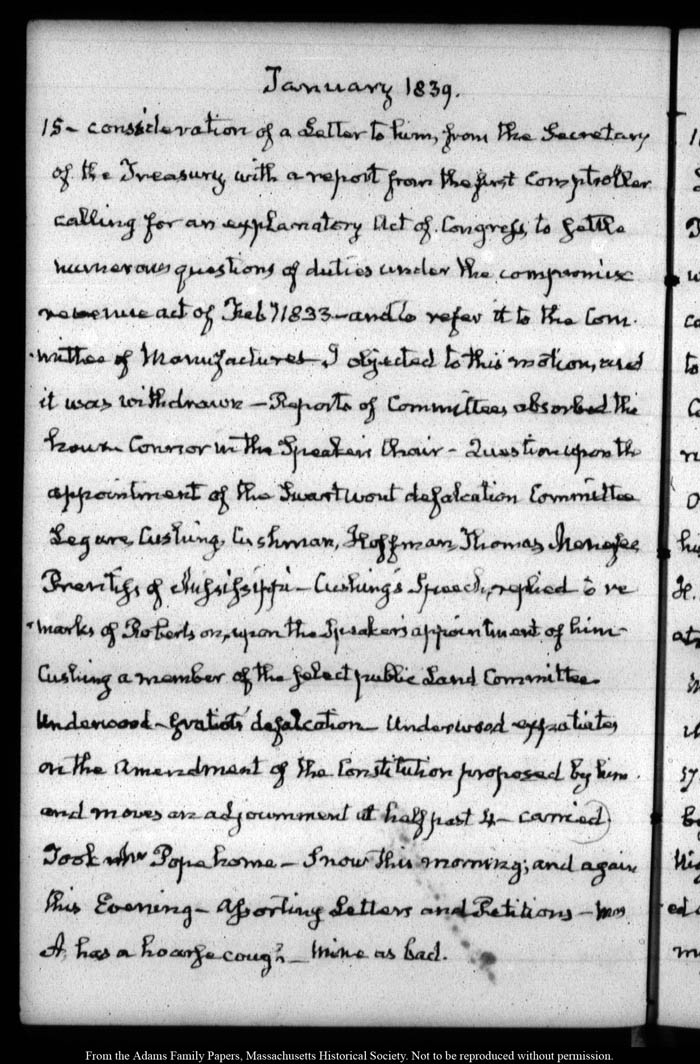 January 1839.
15 - consideration of a Letter to him, from the Secretary
of the Treasury with a report from the first Comptroller
calling for an explanatory Act of Congress, to settle
numerous questions of duties under the compromise
revenue act of Feby 1833 - and to refer it to the Com-
mittee of Manufactures. I objected to this motion, and
it was withdrawn - Reports of Committees absorbed the
hour Connor in the Speaker's Chair - Question upon the
appointment of the Swartwout defalcation Committee
Legare, Cushing, Cushman, Hoffman, Thomas, Menefee
Prentiss of Mississippi - Cushing's Speech, replied to re
marks of Robertson, upon the Speaker's appointment of him
Cushing a member of the select public Land Committee.
Underwood - Gratiot's defalcation - Underwood expatiates
on the Amendment of the Constitution proposed by him
and moves an adjournment at half past 4 - carried
Took Pope home - Snow this morning; and again
this Evening - Assorting Letters and Petitions - Mrs
A. has a hoarse cough - Mine as bad.
From the Adams Family Papers, Massachusetts Historical Society. Not to be reproduced without permission.